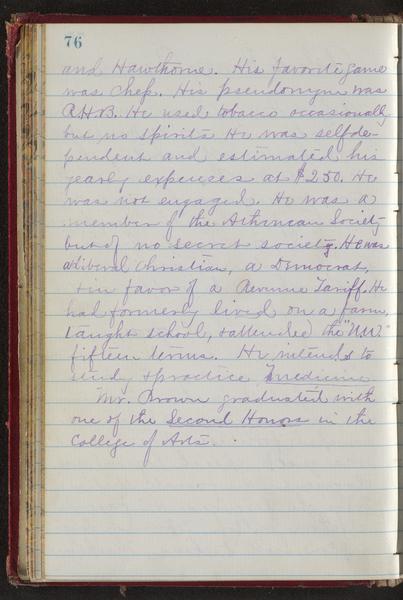 76
and Hawthorne. His favorite game
was Chess. His pseudonym was
A.H.B. He used tobacco occasionally
but no spirits He was selfde-
pendent and estimated his
yearly expenses at $250. He
was not engaged. He was a
member of the Athenaean Society
but of no secret society. He was
a liberal Christian, a Democrat,
& in favor of a Revenue Tariff. He
had formerly lived on a farm,
taught school, & attended the "N.W."
fifteen terms. He intends to
study & practice medicine
Mr. Brown graduated with
one of the Second Honors in the
College of Arts.